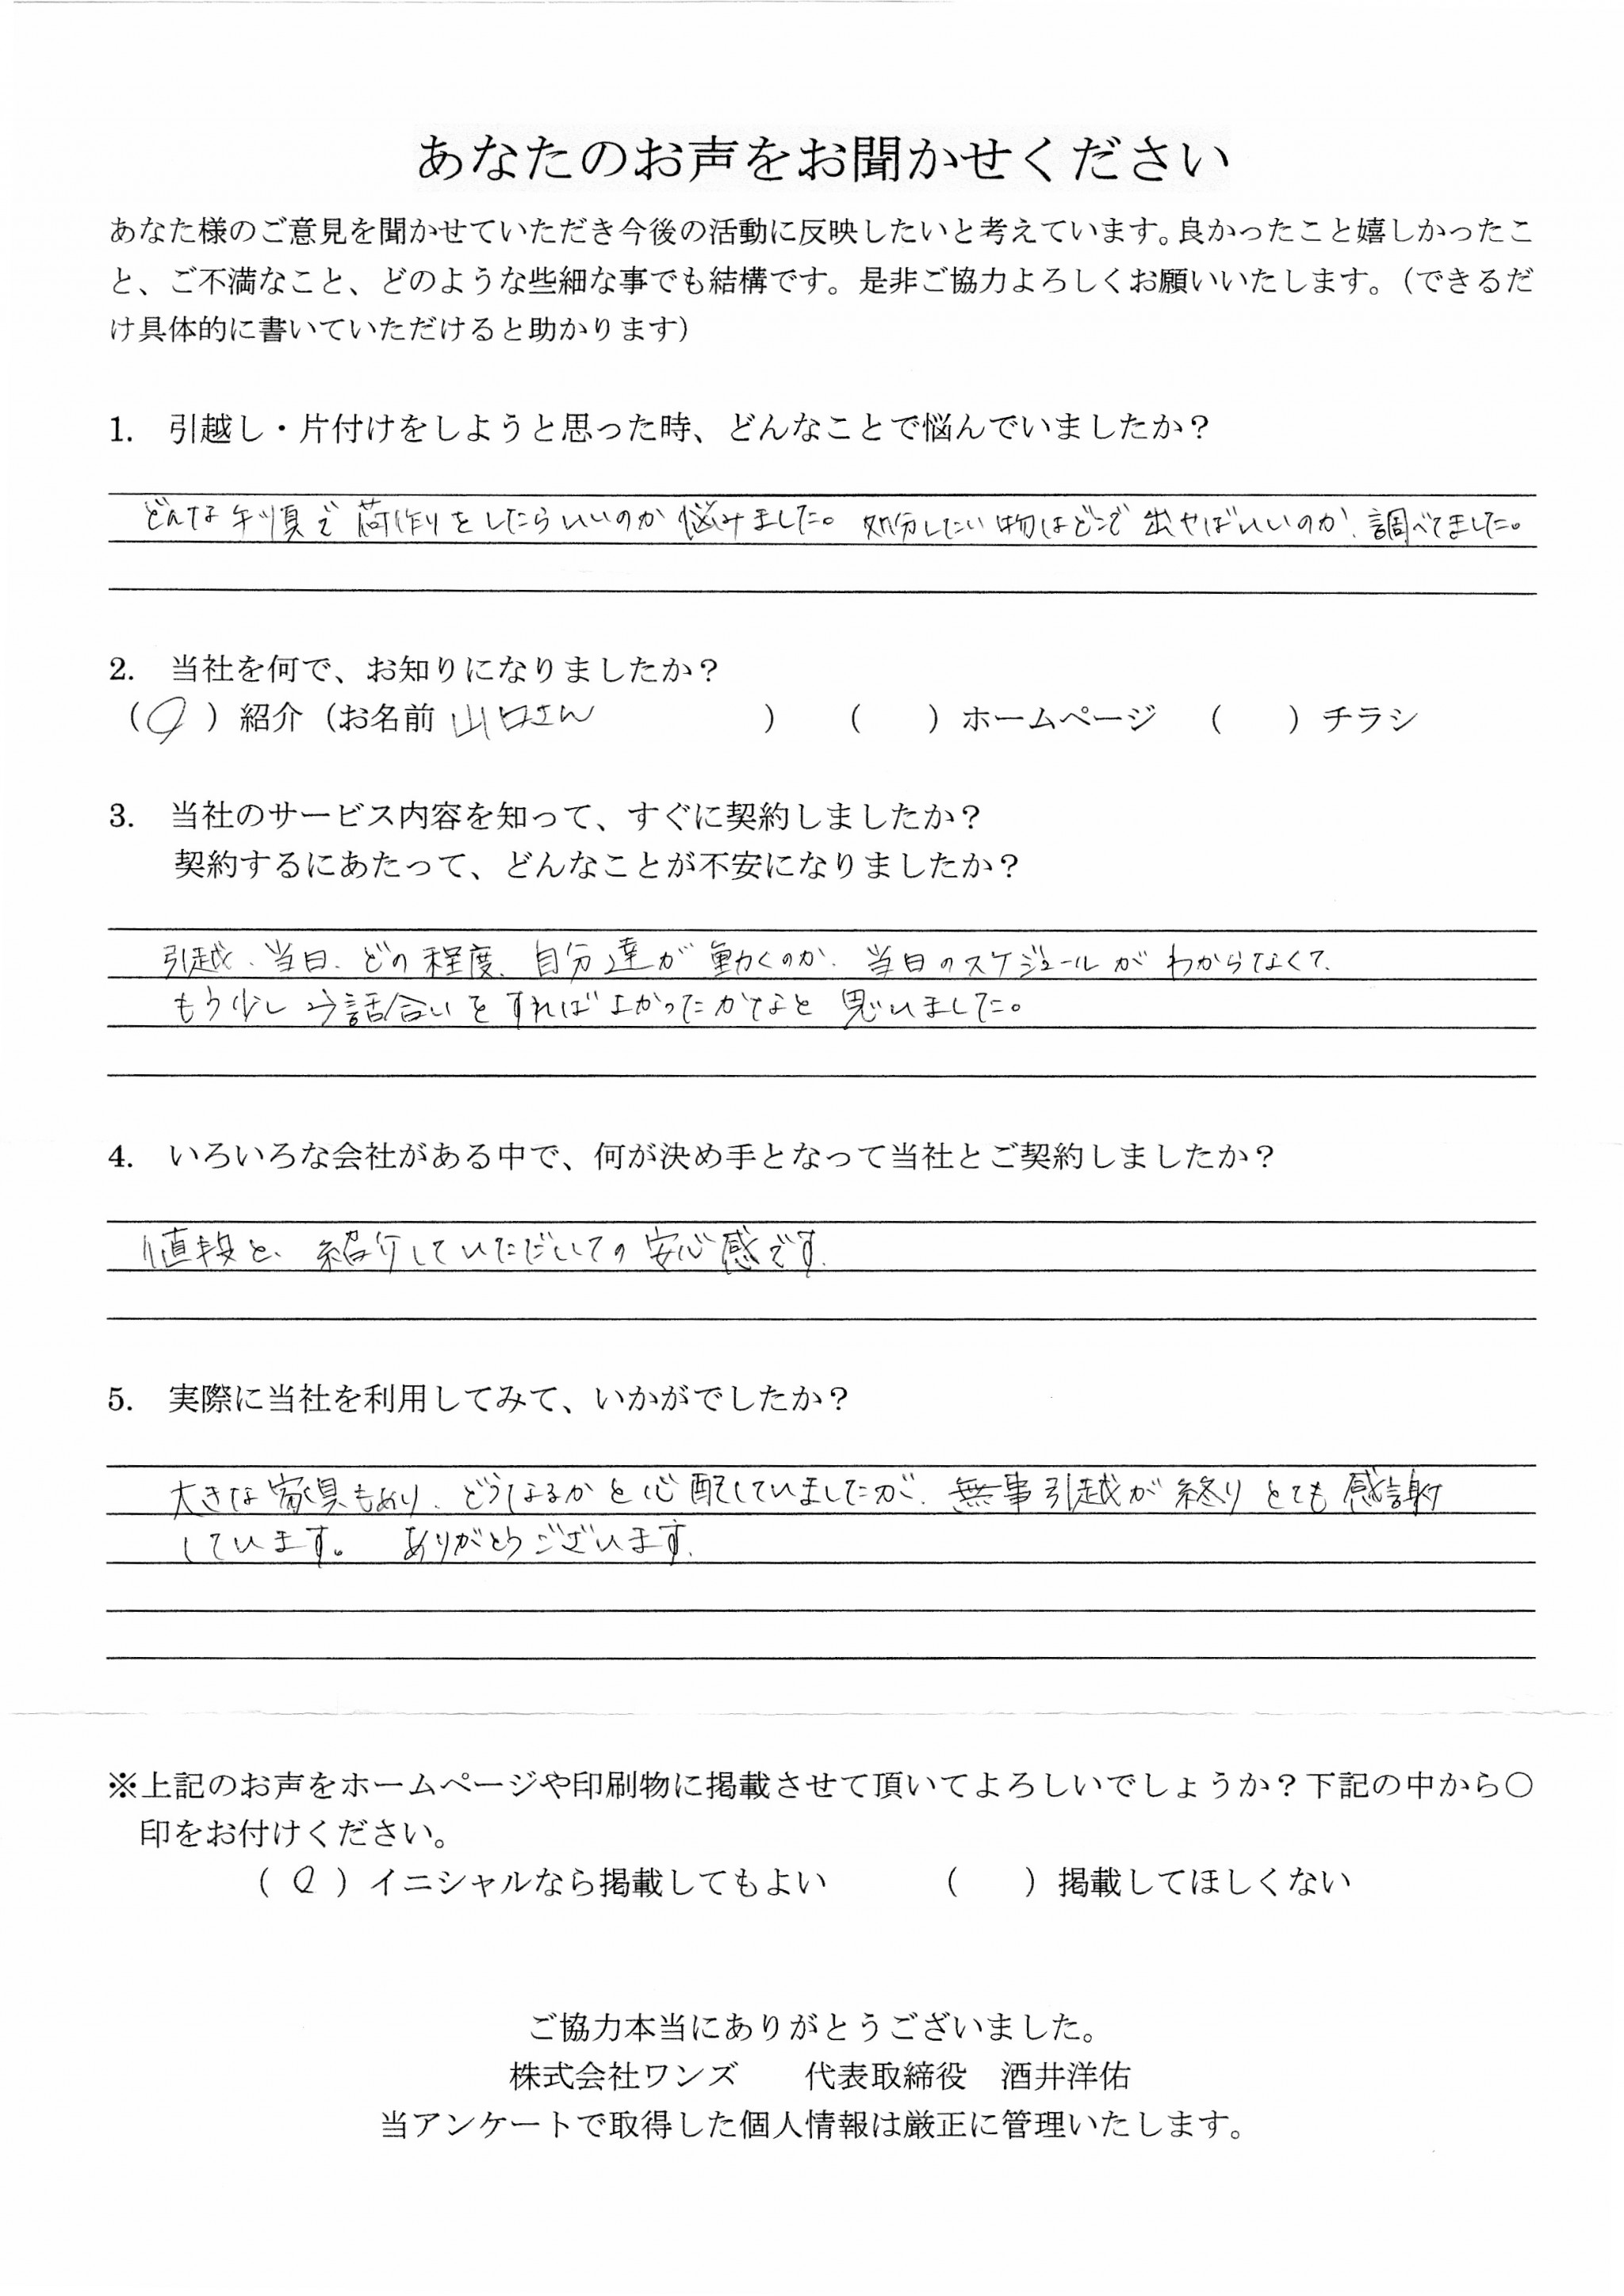 あなたのお声をお聞かせください
あなた様のご意見を聞かせていただき今後の活動に反映したいと考えています。良かったこと嬉しかったこ
と、ご不満なこと、どのような些細な事でも結構です。是非ご協力よろしくお願いいたします。（できるだ
け具体的に書いていただけると助かります）
1. 引越し・片付けをしようと思った時、どんなことで悩んでいましたか？
どんな手順で荷作りをしたらいいのか悩みました。処分したい物はどこで出せばいいのか、調べてました。
2. 当社を何で、お知りになりましたか？
（○）紹介（お名前 山口さん ） （ ）ホームページ （ ）チラシ
3. 当社のサービス内容を知って、すぐに契約しましたか？
契約するにあたって、どんなことが不安になりましたか？
引越、当日、どの程度、自分達が動くのか、当日のスケジュールがわからなくて、
もう少し話合いをすればよかったかなと思いました。
4. いろいろな会社がある中で、何が決め手となって当社とご契約しましたか？
値段と、紹介していただいての安心感です。
5. 実際に当社を利用してみて、いかがでしたか？
大きな家具もあり、どうなるかと心配していましたが、無事引越が終りとても感謝
しています。 ありがとうございます。
※上記のお声をホームページや印刷物に掲載させて頂いてよろしいでしょうか？下記の中から○
印をお付けください。
（ ○ ）イニシャルなら掲載してもよい （ ）掲載してほしくない
ご協力本当にありがとうございました。
株式会社ワンズ 代表取締役 酒井洋佑
当アンケートで取得した個人情報は厳正に管理いたします。